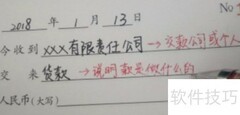 2018 年 1 月 13 日 No
今收到 XXX有限责任公司→交款公司或个人
交 来 货款 →说明款是做什么的
人民币(大写)
软件技巧